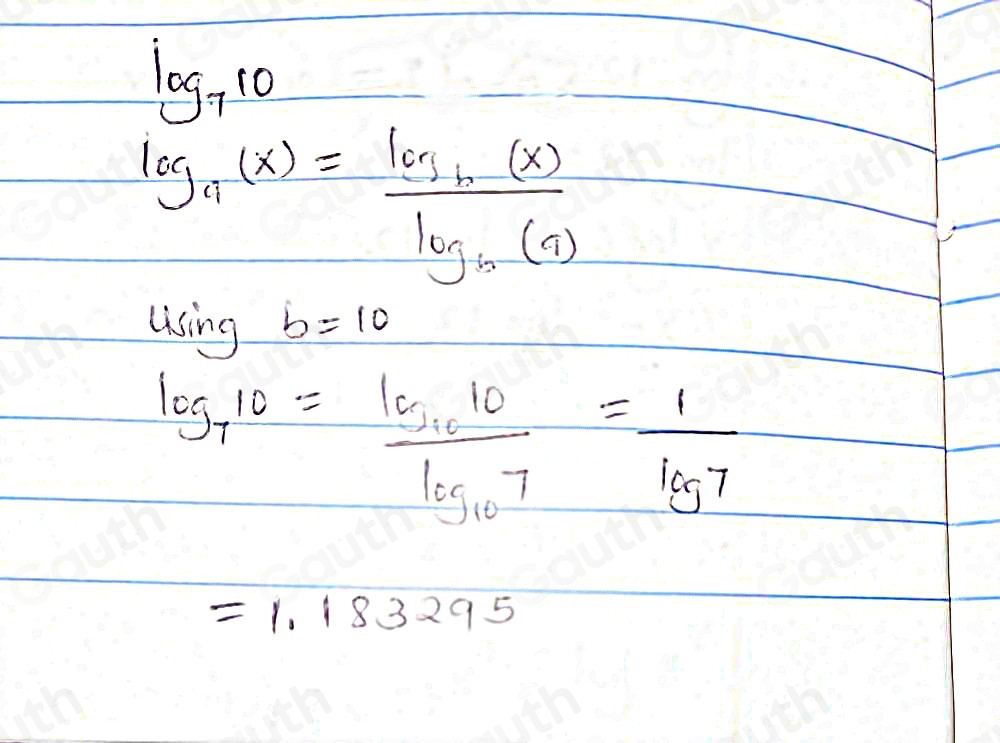 log₇10
logₐ(x) = log_b (x) / log_b (a)
Using b = 10
log₇10 = log₁₀10 / log₁₀7 = 1 / log7
= 1.183295